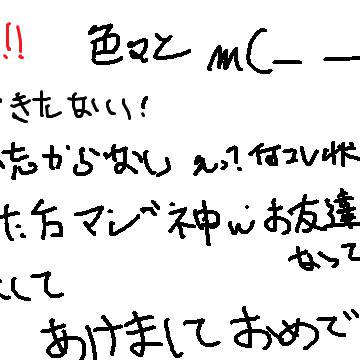 !! 色々と m(_ _
きたない!
志からない えっ?なにコレ状
た方マジべ神ⅳお友達
なって
として
あけましておめで